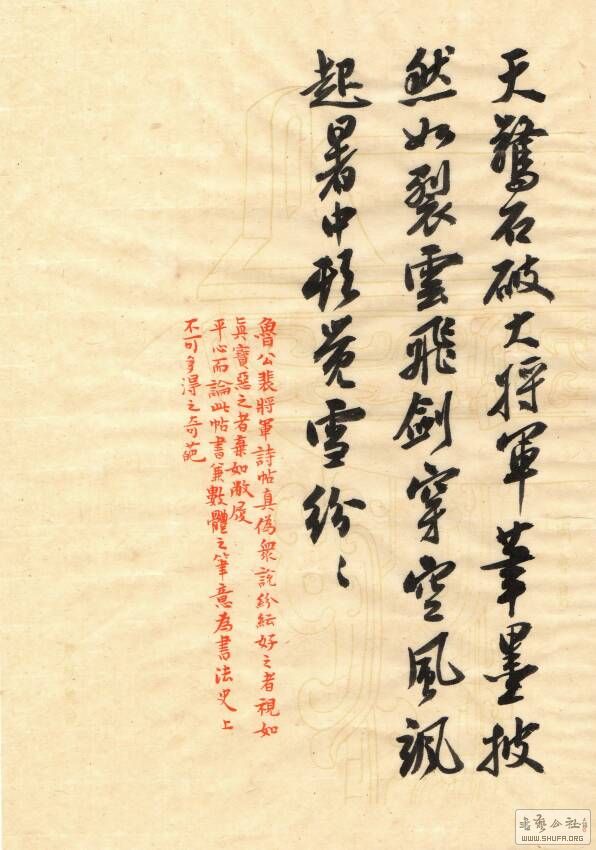 天驚石破大将軍筆墨披
然如裂雲飛劍穿空風颯
起暑中頓覺雪紛〻
魯公裴將軍詩帖真偽衆說紛紜好之者視如
眞寶惡之者棄如敝屣
平心而論此帖書兼數體之筆意為書法史上
不可多得之奇葩
書藝公社
WWW.SHUFA.ORG